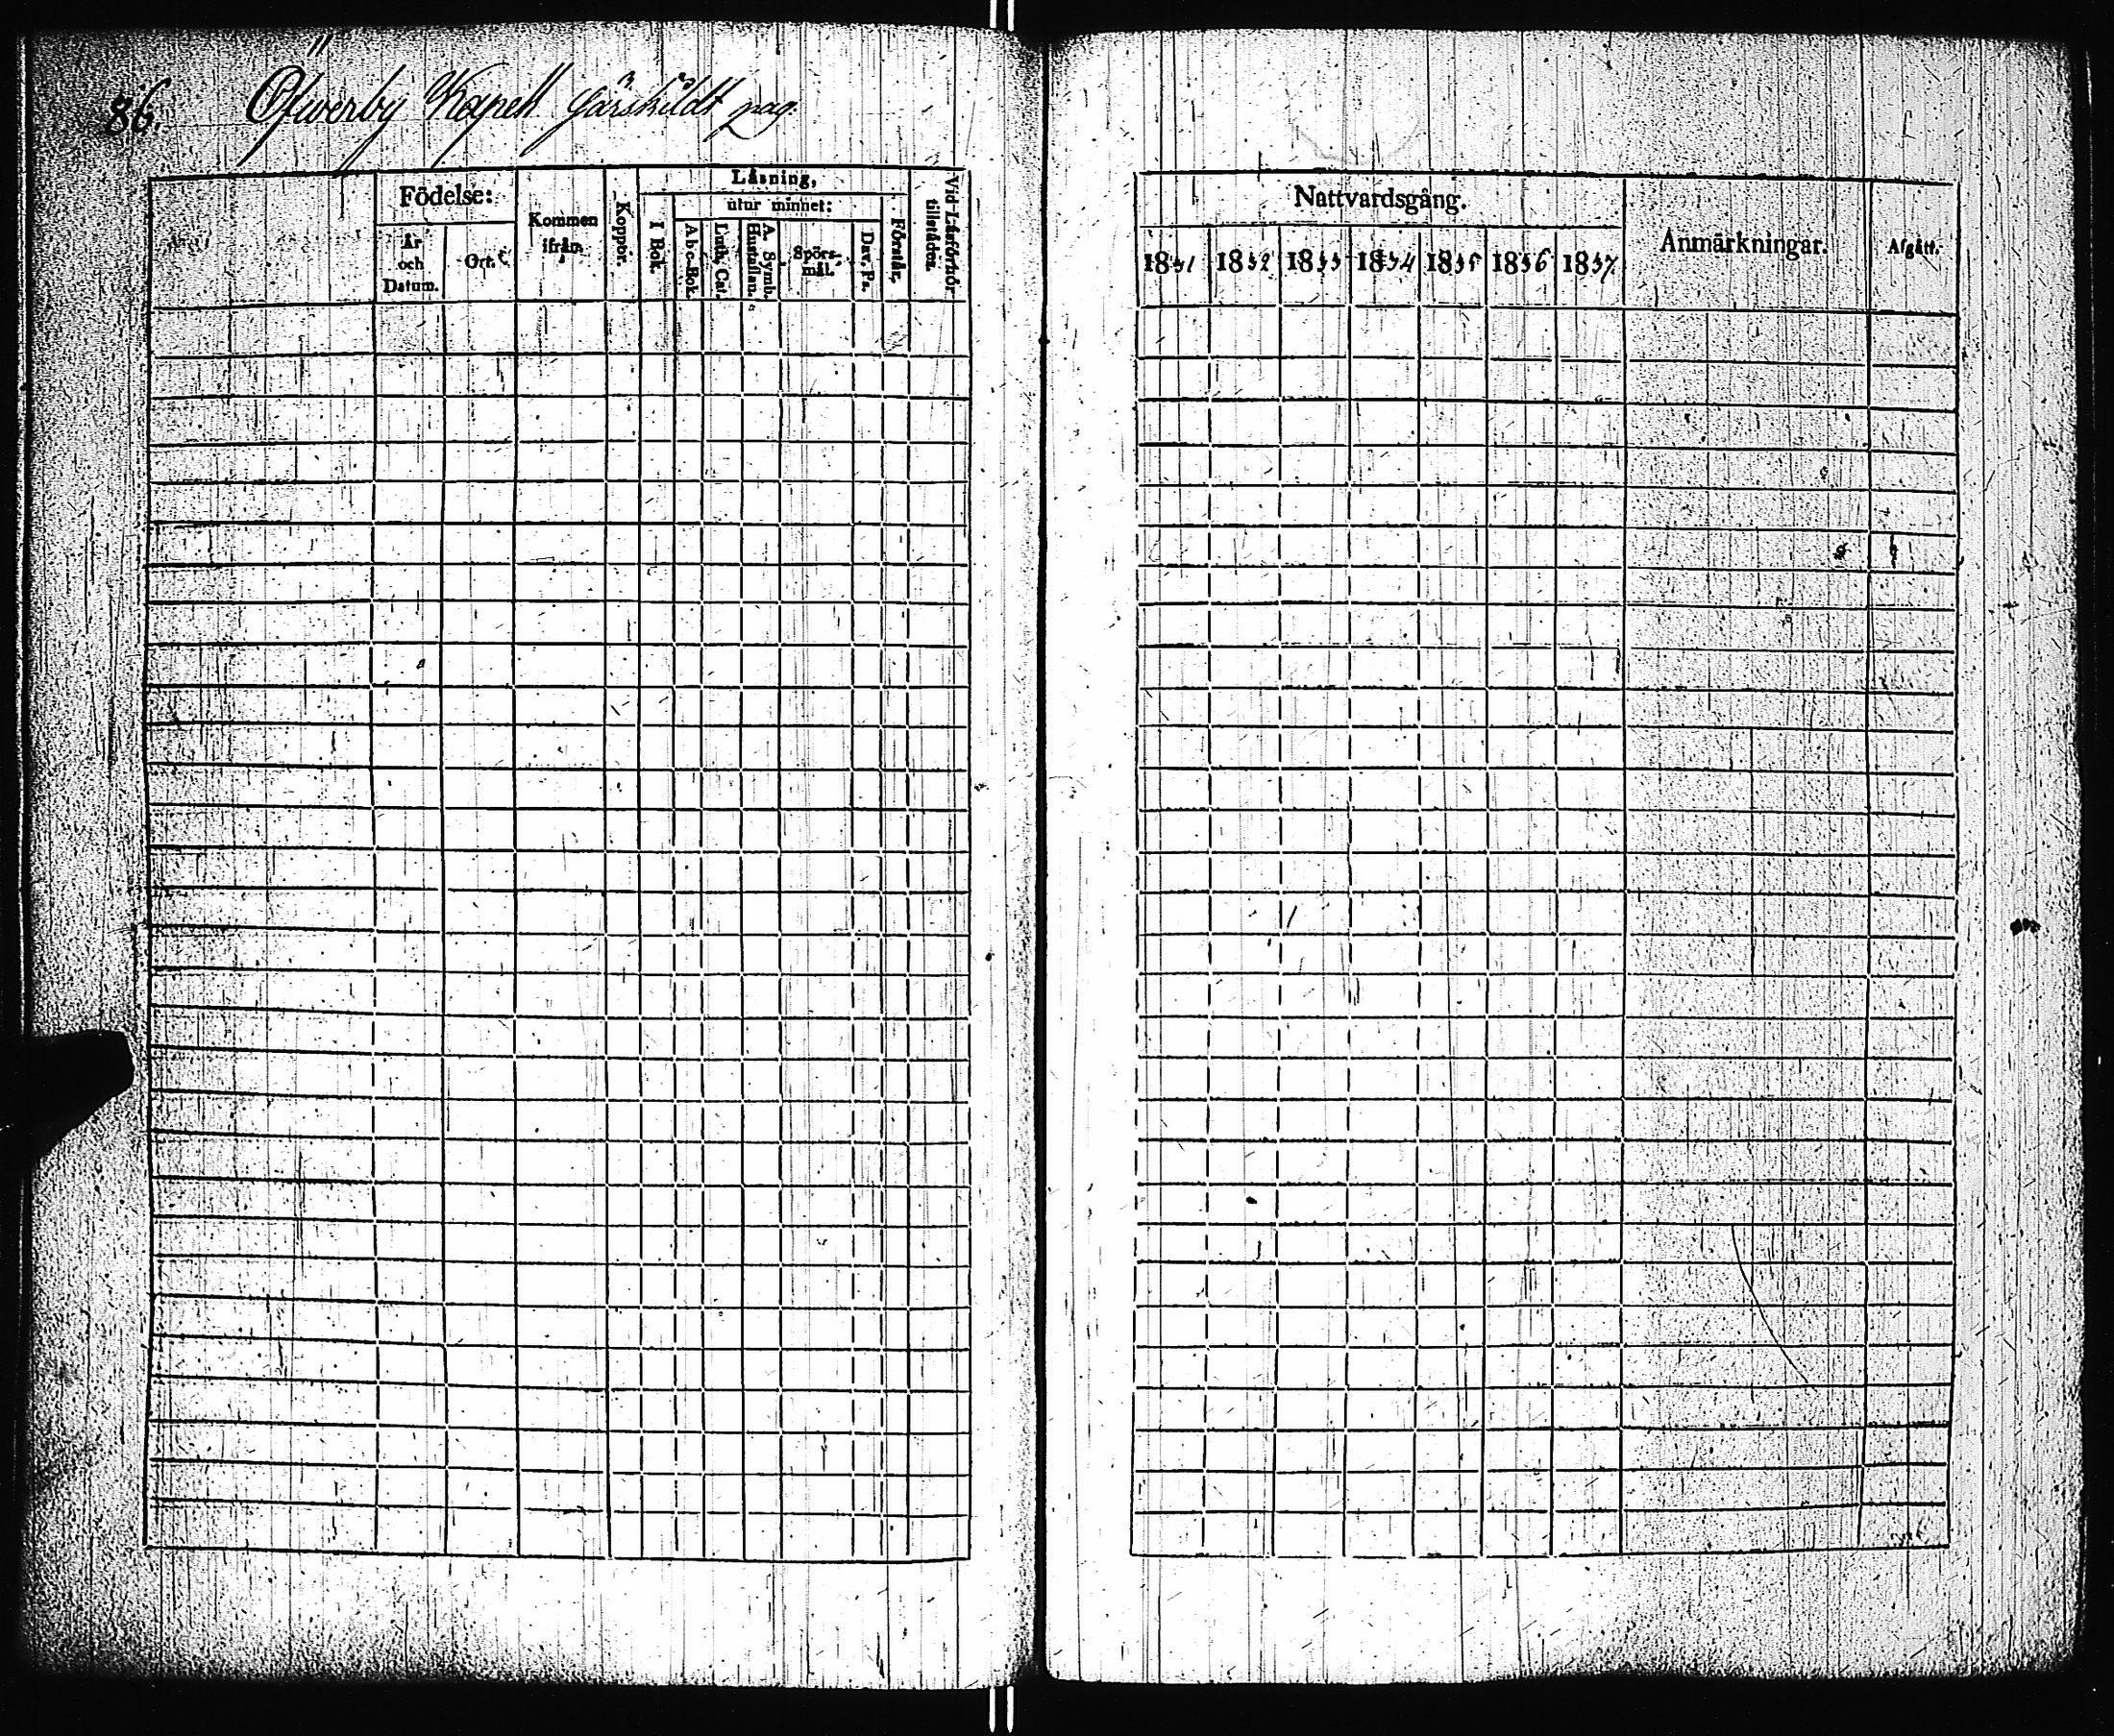 86. Öfwerby Kapell särskildt pag.
Födelse:
År och Datum.
Ort.
Kommen ifrån.
Koppor.
Läsning,
I Bok.
utur minnet:
A b c-Bok.
Luth. Cat.
A. Symb. Hustaflan.
Spörs-mål.
Dav. Ps.
Förstår.
Vid Läsförhör tillstädes.
Nattvardsgång.
1831 1832 1833 1834 1835 1836 1837
Anmärkningar.
Afgått.